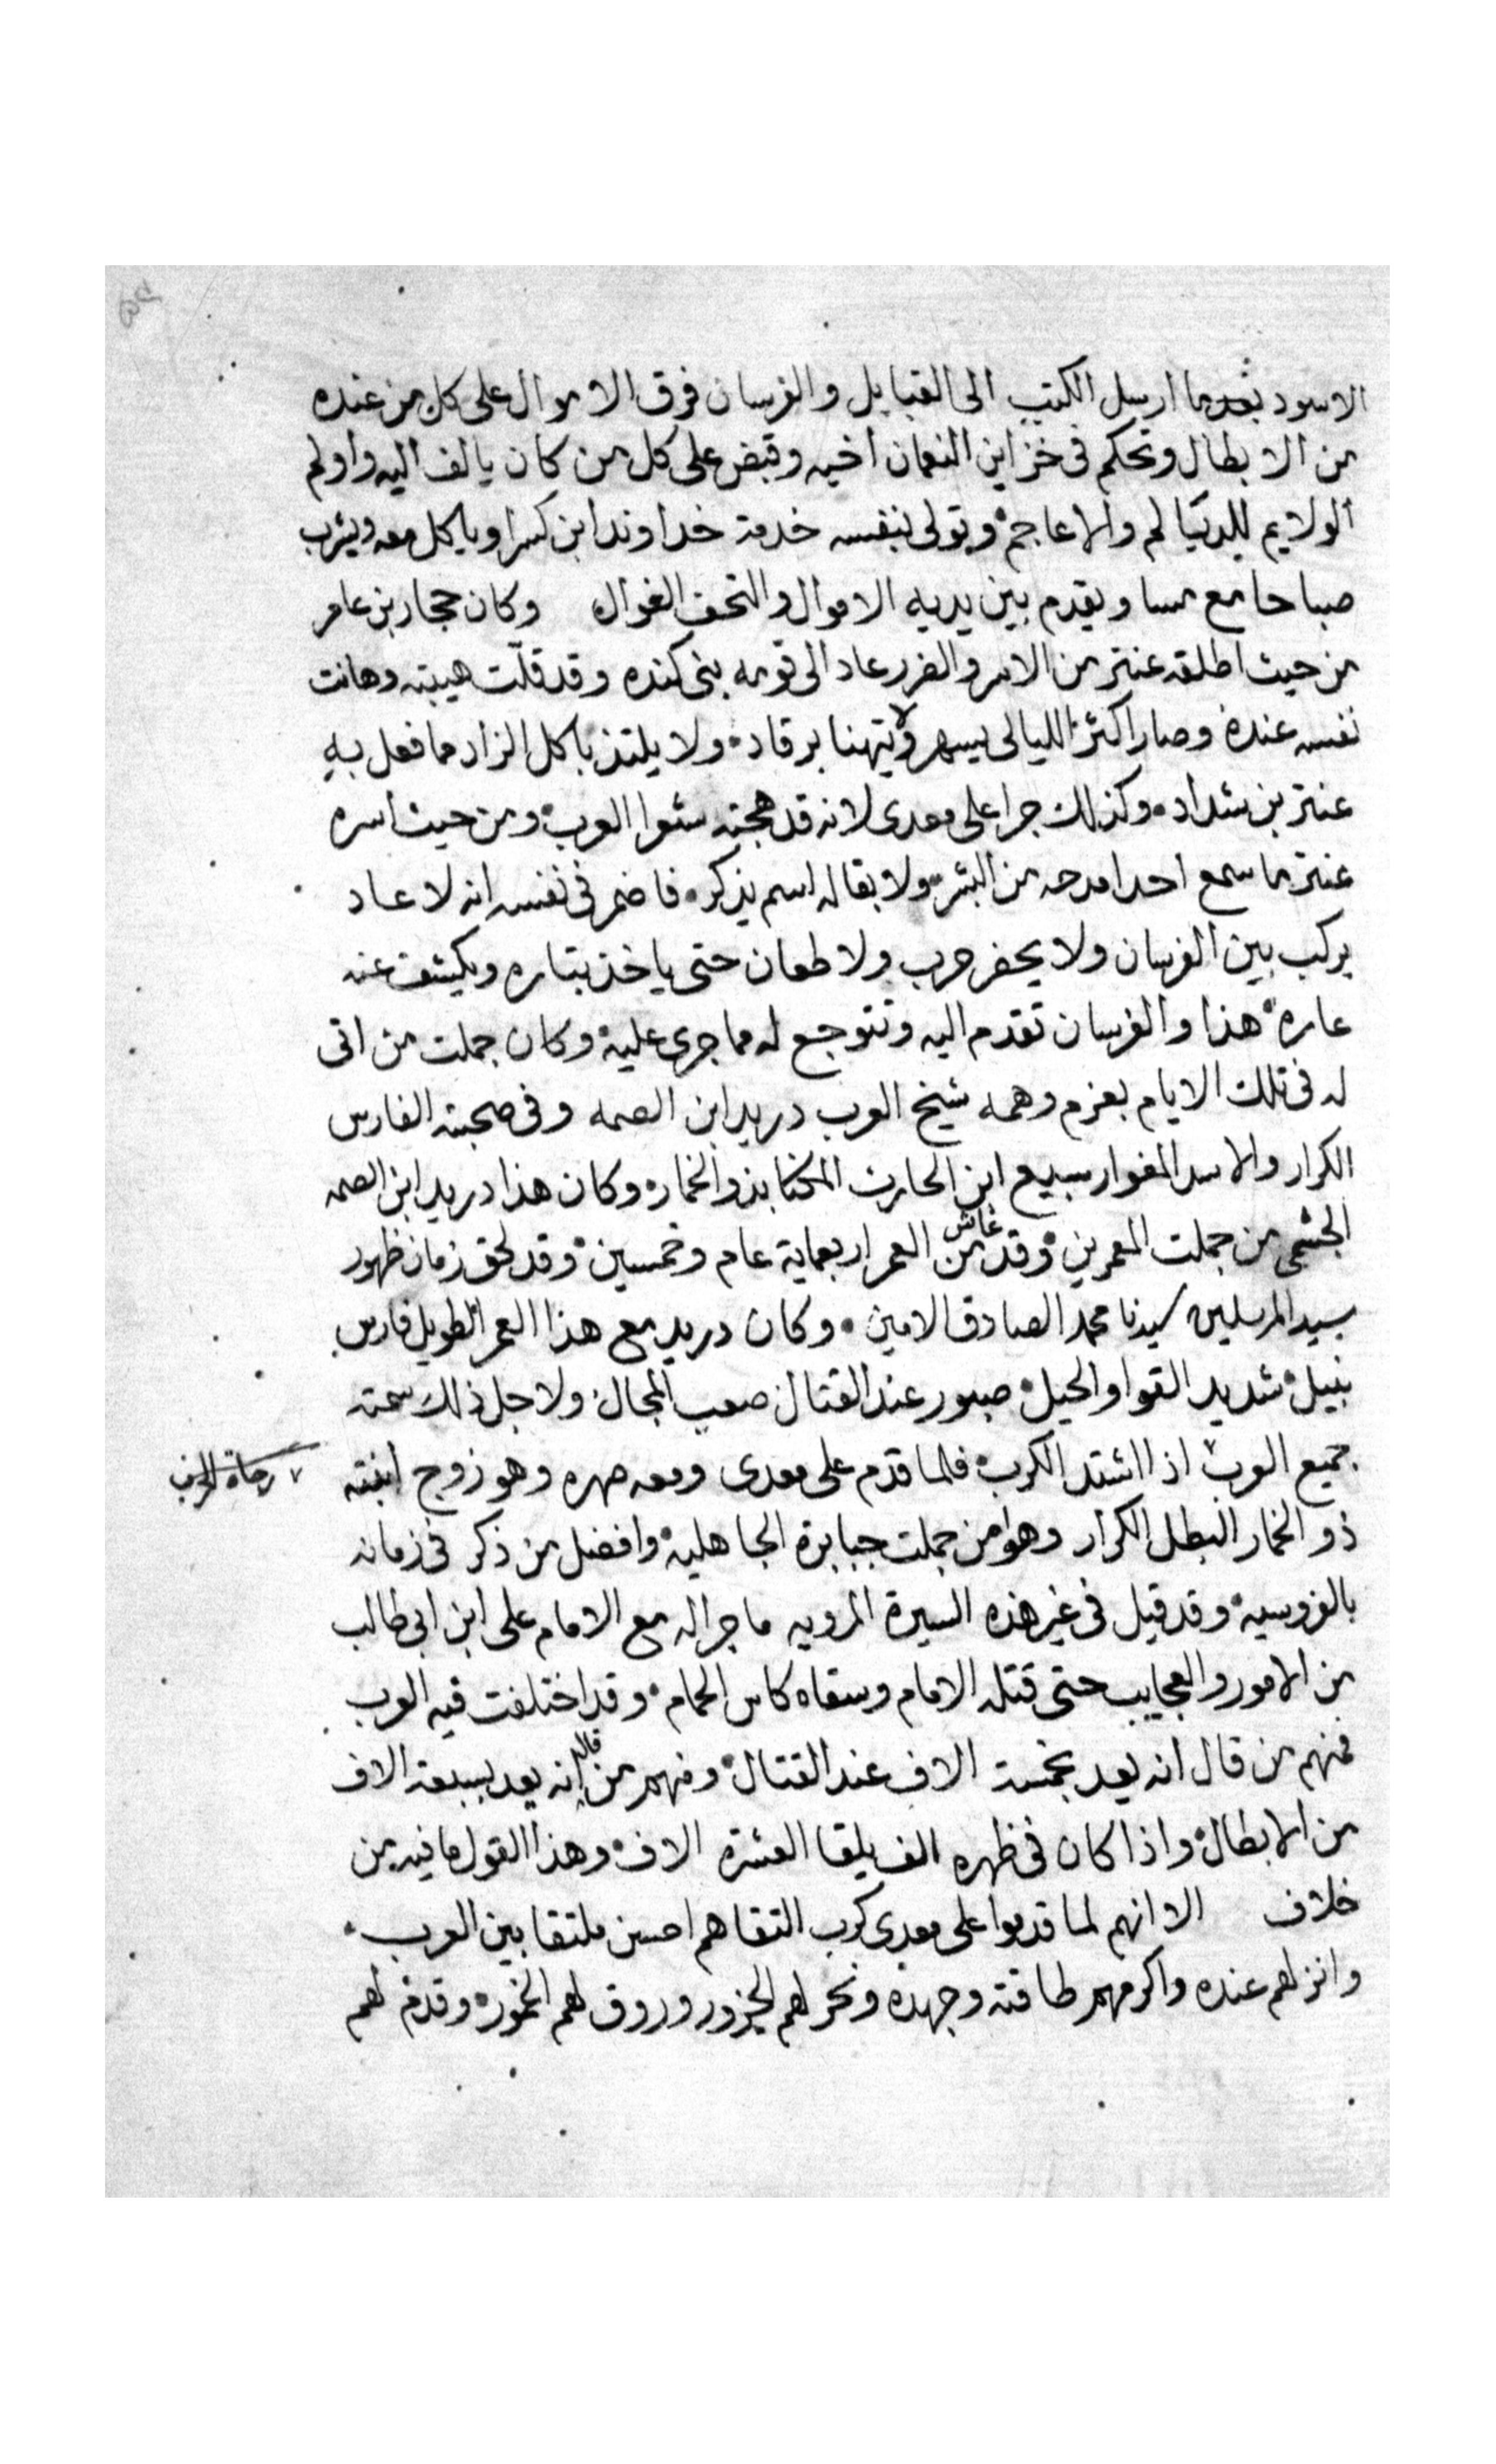 الاسود بعدما ارسل الكتب الى القبايل والفرسان فرق الاموال على كل من عنده
من الابطال وتحكم فى خزاين النعمان اخيه وقبض على كل من كان يالف اليه واولم
الولايم للديالم والاعاجم وتولى بنفسه خدمة خداوند ابن كسرا وياكل معه ويشرب
صباحا مع مسا ويقدم بين يديه الاموال والتحف الغوال وكان حجار بن عامر
من حيث اطلقه عنتر من الاسر والضرر عاد الى قومه بنى كنده وقد قلت هيبته وهانت
نفسه عنده وصار اكثر الليالى يسهر ولا يتهنا برقاد ولا يلتذ باكل الزاد مما فعل به
عنتر بن شداد وكذلك جرا على معدى لانه قد هجته شعرا العرب ومن حيث اسره
عنتر ما سمع احدا مدحه من البشر ولا بقا له اسم يذكر فاضمر فى نفسه انه لا عاد
يركب بين الفرسان ولا يحضر حرب ولا طعان حتى ياخذ بتاره ويكشف عنه
عاره هذا والفرسان تقدم اليه وتتوجع له مما جرى عليه وكان جملت من اتى
له فى تلك الايام بعزم وهمه شيخ العرب دريد ابن الصمه وفى صحبته الفارس
الكرار والاسد المغوار سبيع ابن الحارث المكنا بذو الخمار وكان هذا دريد ابن الصمه
الجشمى من جملت المعمرين وقد عاش من العمر اربعماية عام وخمسين وقد لحق زمان ظهور
سيد المرسلين سيدنا محمد الصادق الامين وكان دريد مع هذا العمر الطويل فارس
نبيل شديد القوا والحيل صبور عند القتال صعب المجال ولاجل ذلك سمته
جميع العرب اذا اشتد الكرب فلما قدم على معدى ومعه صهره وهو زوج ابنته
رحاة الحرب
ذو الخمار البطل الكرار وهوا من جملت جبابرة الجاهليه وافضل من ذكر فى زمانه
بالفروسيه وقد قيل فى غير هذه السيرة المرويه ما جرا له مع الامام على ابن ابى طالب
من الامور والعجايب حتى قتله الامام وسقاه كاس الحمام وقد اختلفت فيه العرب
فمنهم من قال انه يعد بخمسة الاف عند القتال ومنهم من قال انه يعد بسبعة الاف
من الابطال واذا كان فى ظهره الف يلقا العشرة الاف وهذا القول ما فيه من
خلاف الا انهم لما قدموا على معدى كرب التقاهم احسن ملتقا بين العرب
وانزلهم عنده واكرمهم طاقته وجهده ونحر لهم الجزور وروق لهم الخمور وقدم لهم